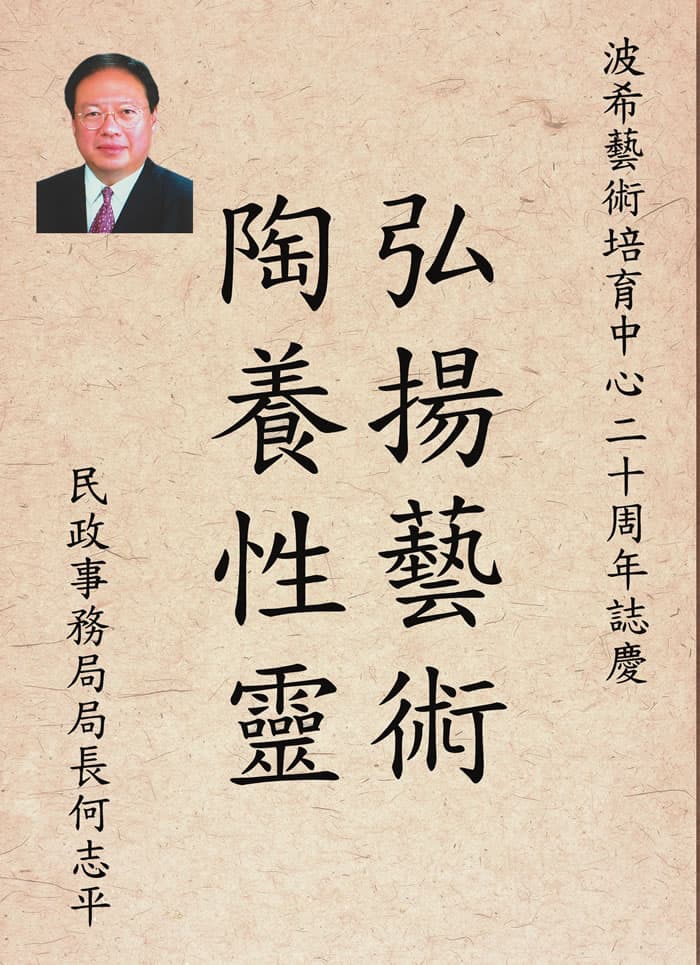 波希藝術培育中心二十周年誌慶
弘揚藝術
陶養性靈
民政事務局局長何志平